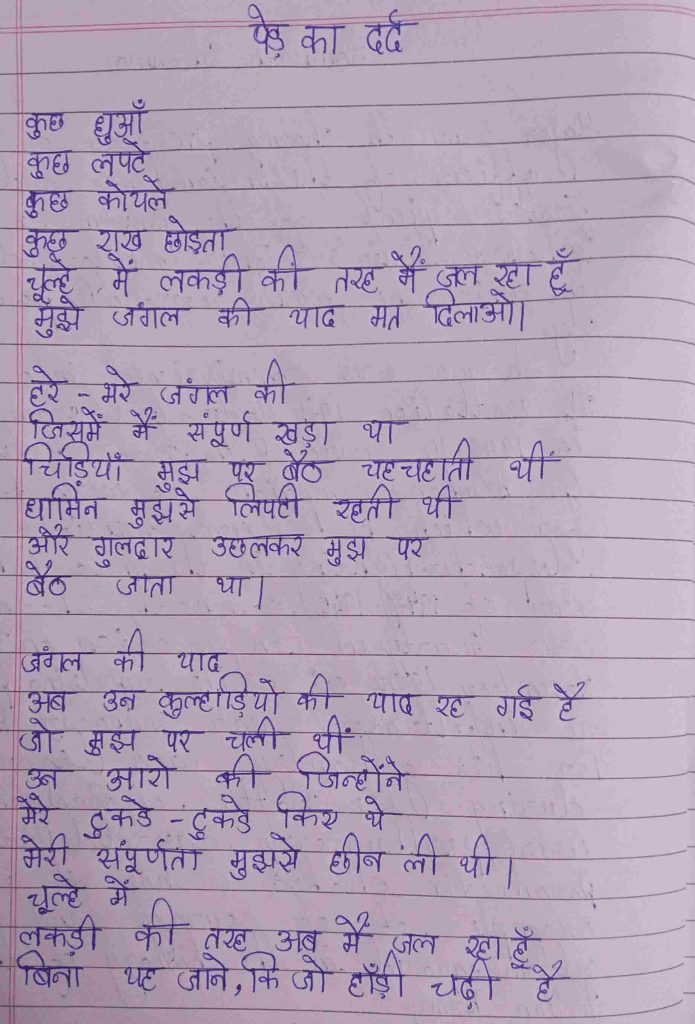 पेड़ का दर्द
कुछ धुआँ
कुछ लपटे
कुछ कोयले
कुछ राख छोड़ता
चूल्हे में लकड़ी की तरह मैं जल रहा हूँ
मुझे जंगल की याद मत दिलाओ।
हरे - भरे जंगल की
जिसमें मैं संपूर्ण खड़ा था
चिड़ियाँ मुझ पर बैठ चहचहाती थीं
धामिन मुझसे लिपटी रहती थी
और गुलदार उछलकर मुझ पर
बैठ जाता था।
जंगल की याद
अब उन कुल्हाड़ियो की याद रह गई है
जो मुझ पर चली थीं
उन आरो की जिन्होंने
मेरे टुकडे - टुकडे किए थे
मेरी संपूर्णता मुझसे छीन ली थी।
चूल्हे में
लकडी की तरह अब मैं जल रहा हूँ
बिना यह जाने, कि जो हाँड़ी चढ़ी है